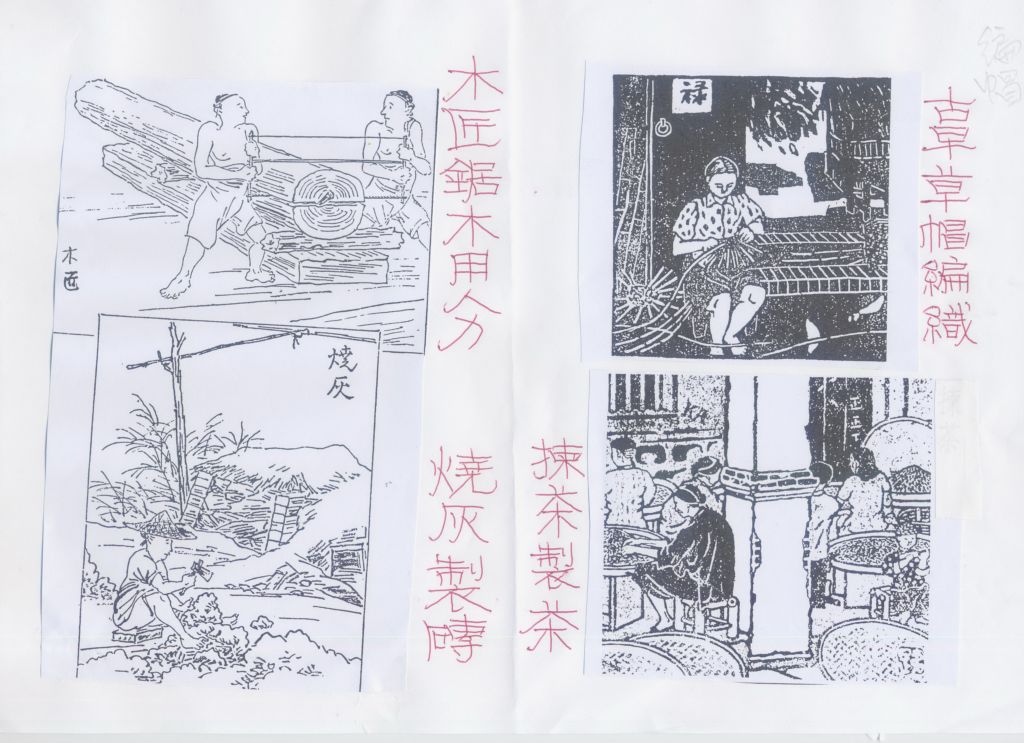 編帽
古早草帽編織
禄
木匠鋸木用人力
木匠
揀茶
揀茶製茶
燒灰製磚
燒灰